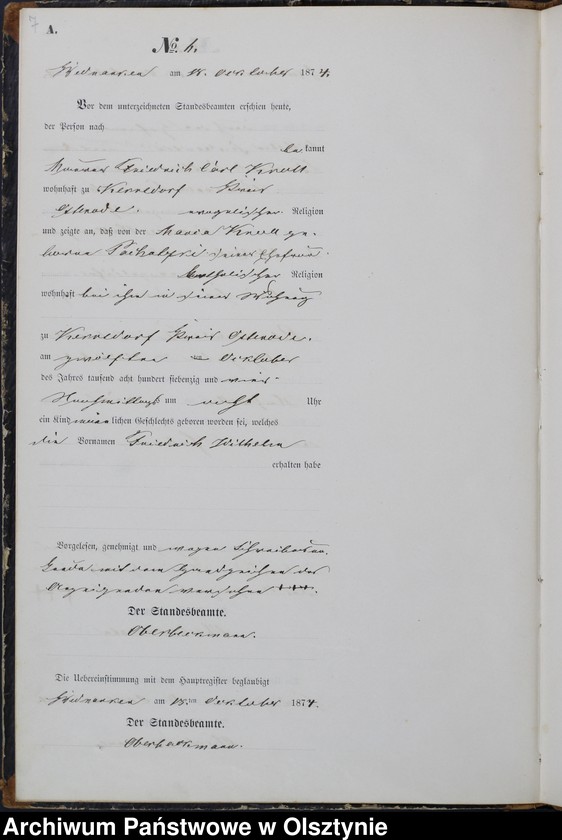 7
A.
No. 6.
am 18. October 1874.
Vor dem unterzeichneten Standesbeamten erschien heute,
der Person nach
bekannt
Maurer Friedrich Carl Knoll
wohnhaft zu Kreis
Osterode. evangelischer Religion
und zeigte an, daß von der Maria Knoll ge-
borne seiner Ehefrau
katholischer Religion
wohnhaft bei ihm in seiner Wohnung
zu Kreis Osterode.
am zwölften October
des Jahres tausend acht hundert siebenzig und vier
Nachmittags um acht Uhr
ein Kind männlichen Geschlechts geboren worden sei, welches
die Vornamen Friedrich Wilhelm
erhalten habe
Vorgelesen, genehmigt und wegen Schreibensun-
kunde mit dem Handzeichen des
Anzeigenden versehen +++.
Der Standesbeamte.
Oberbeckmann.
Die Uebereinstimmung mit dem Hauptregister beglaubigt
am 18.ten October 1874.
Der Standesbeamte.
Oberbeckmann.
Archiwum Państwowe w Olsztynie